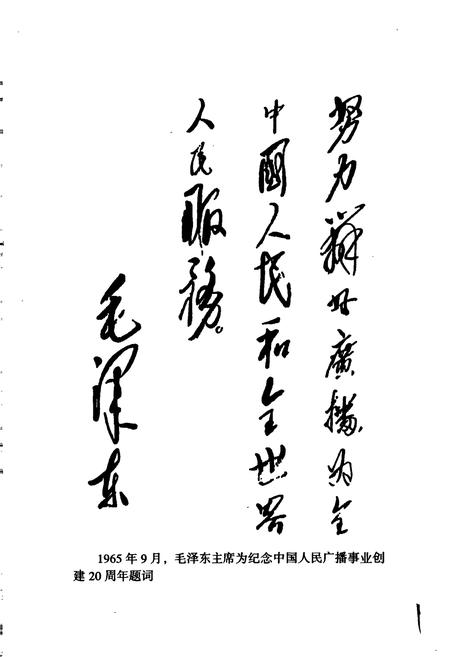 努力辦好廣播，为全
中國人民和全世界
人民服務。
毛泽东
1965年9月，毛泽东主席为纪念中国人民广播事业创
建20周年题词